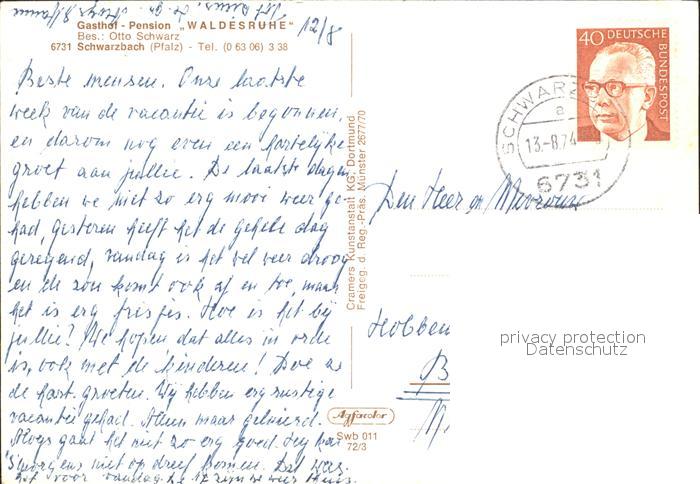 Gasthof - Pension „WALDESRUHE"
Bes.: Otto Schwarz
6731 Schwarzbach (Pfalz) - Tel. (0 63 06) 3 38
12/8
Beste mensen. Onze laatste
week van de vacantie is begonnen,
en darom nog even een hartelijke
groet aan jullie. De laatste dagen
hebben we niet zo erg mooi weer ge-
had, gisteren heeft het de gehele dag
geregend, vandaag is het wel weer droog
en de zon komt ook af en toe, maar
het is erg frisjes. Hoe is het bij
jullie? We hopen dat alles in orde
is, ook met de kinderen! Doe ze
de hart. groeten. Wij hebben erg rustige
vacantie gehad. Alleen maar geluierd.
gaat het niet zo erg goed.
's morgens niet op dreef komen. Dat was
het voor vandaag. De 17 zijn we weer thuis.
Cramers Kunstanstalt KG, Dortmund
Freigeg. d. Reg.-Präs. Münster 2677/70
Agfacolor
Swb 011
72/3
40 DEUTSCHE BUNDESPOST
SCHWARZ
a
13.-8.74
6731
Den Heer en Mevrouw
Hobben
B
privacy protection
Datenschutz